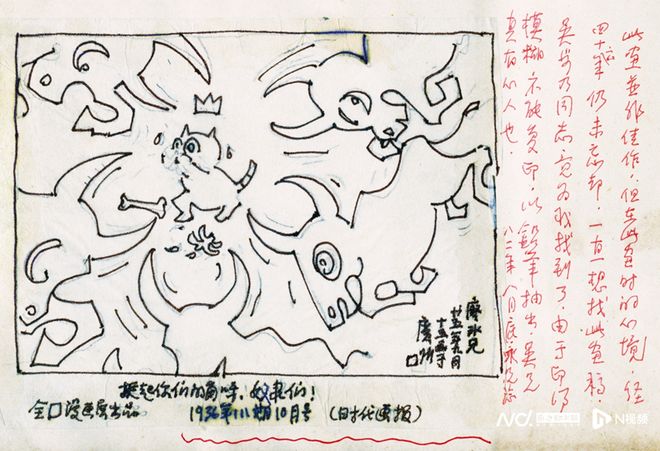 此画并非佳作，但在此画时的心境，经
四十年仍未忘却，一直想找此画稿，
吴步乃同志竟为我找到了，由于印得
模糊不能复印，以笔出，吴兄
真有心人也。
八二年八月廖冰兄
廖冰兄
廿五年九月
十五画于
挺起你们的角呀，奴隶们！
全国漫画展出品 1936年111期10月号 （时代画报）
N视频